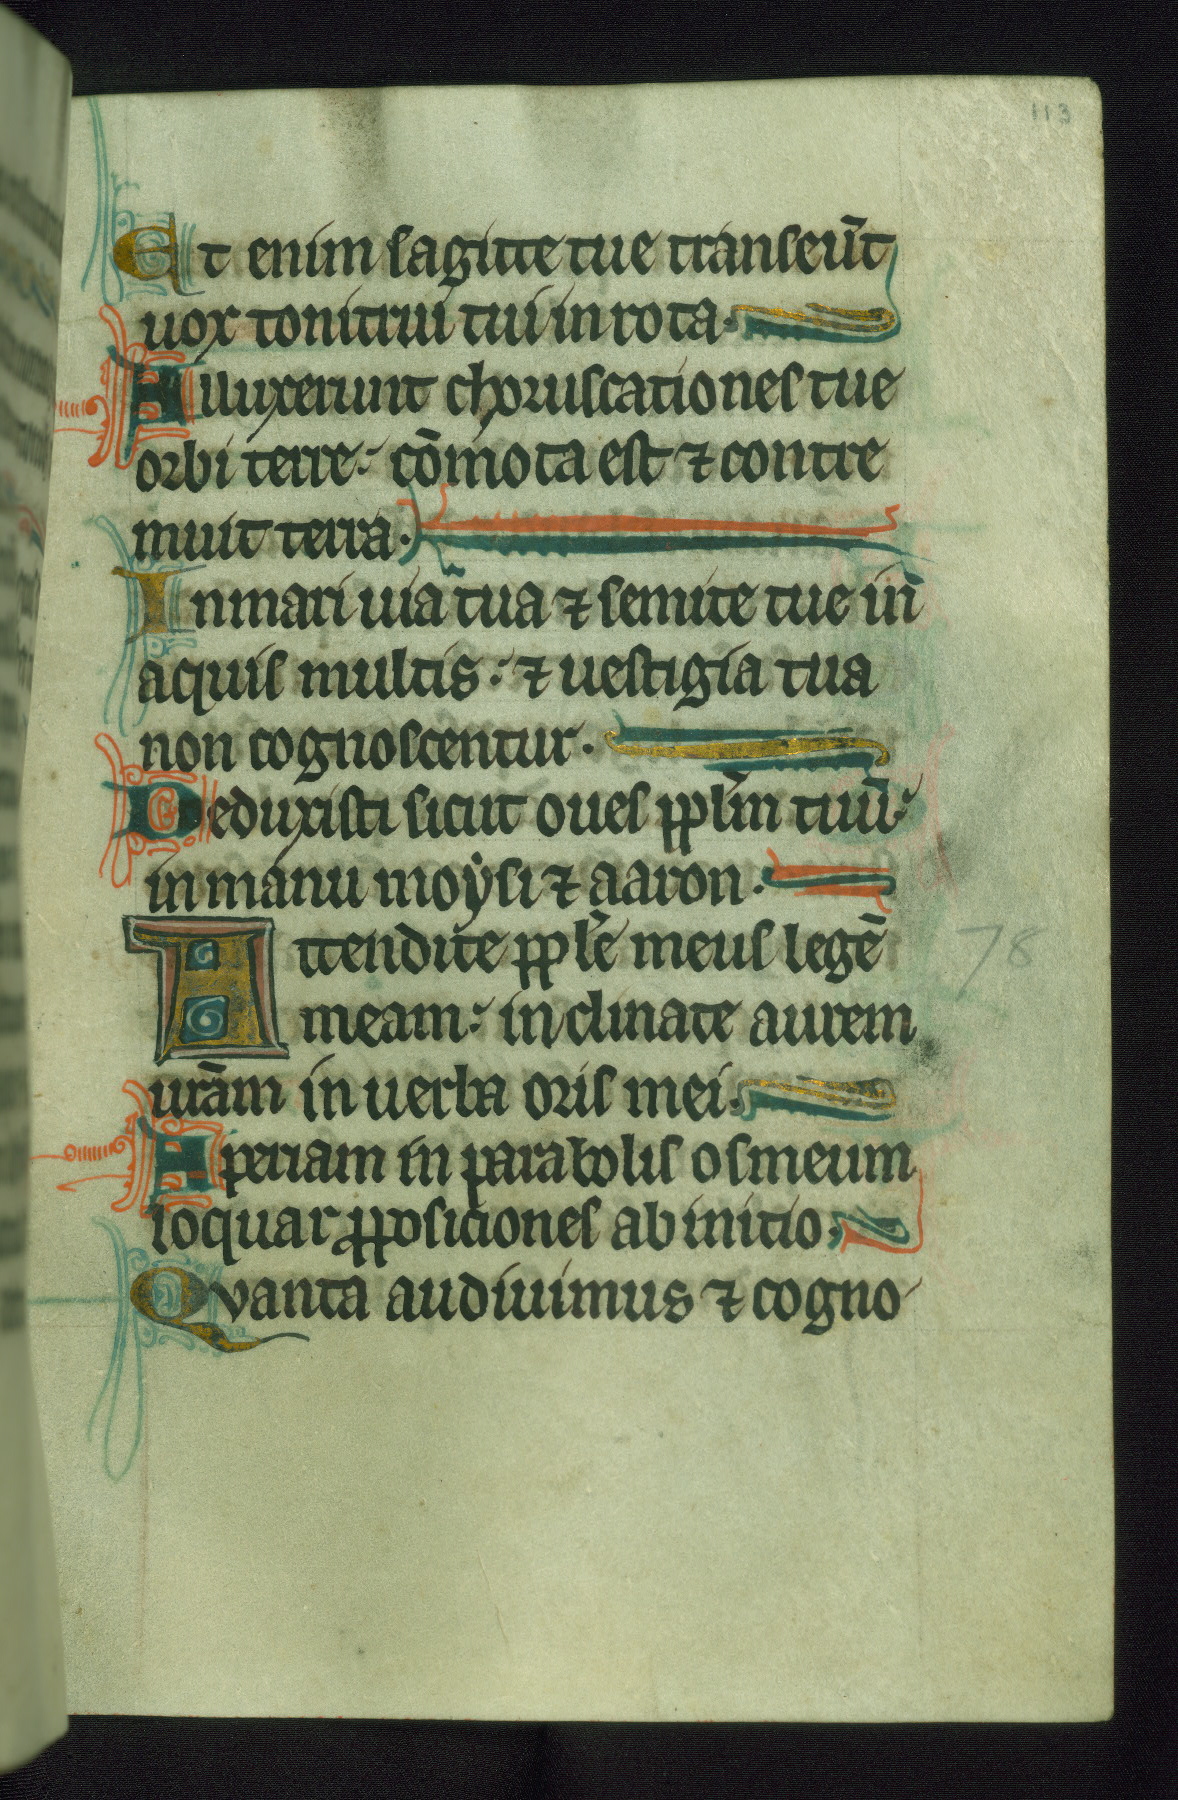 113
Et enim sagitte tue transeūt
uox tonitrui tui in rota.
Alluxerunt choruscationes tue
orbi terre: cōmota est ⁊ contre
muit terra.
In mari uia tua ⁊ semite tue in
aquis multis: ⁊ uestigia tua
non cognoscentur.
Deduxisti sicut oues pplm̄ tuū:
in manu moẏsi ⁊ aaron.
Attendite pplē meus legē
78
meam: inclinate aurem
urām in uerba oris mei.
Aperiam in parabolis os meum
loquar ꝓposiciones ab inicio.
Quanta audiuimus ⁊ cogno